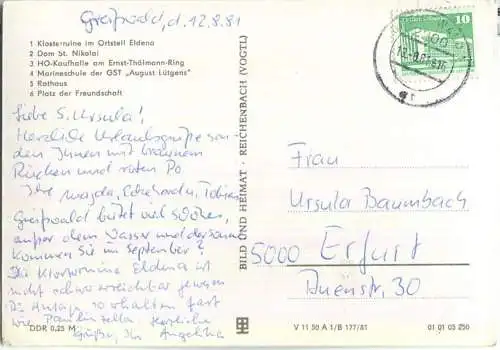 Greifswald, d. 12.8.81
1 Klosterruine im Ortsteil Eldena
2 Dom St. Nikolai
3 HO-Kaufhalle am Ernst-Thälmann-Ring
4 Marineschule der GST „August Lütgens"
5 Rathaus
6 Platz der Freundschaft
Liebe S. Ursula!
Herzliche Urlaubsgrüße sen-
den Ihnen mit braunem
Rücken und roten Po
Ihre Magda, Eckehard u. Tobias
Greifswald bietet viel Schönes,
außer dem Wasser und der Sonne
Kommen Sie im September?
Die Klosterruine Eldena ist
nicht schwer erreichbar gewesen
Die Anlage so erhalten fast
wie Paulinzella. Herzliche
Grüße, Ihre Angelika
DDR 0,25 M
BILD UND HEIMAT · REICHENBACH (VOGTL)
10
Frau
Ursula Baumbach
5000 Erfurt
Auenstr. 30
V 11 50 A 1/B 177/81
01 01 03 250